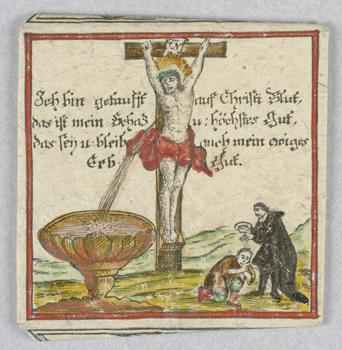 Ich bin getaufft auf Christi Blut,
das ist mein Schatz u: höchstes Gut,
das sey u: bleib auch mein ewiges
Erb Gut.